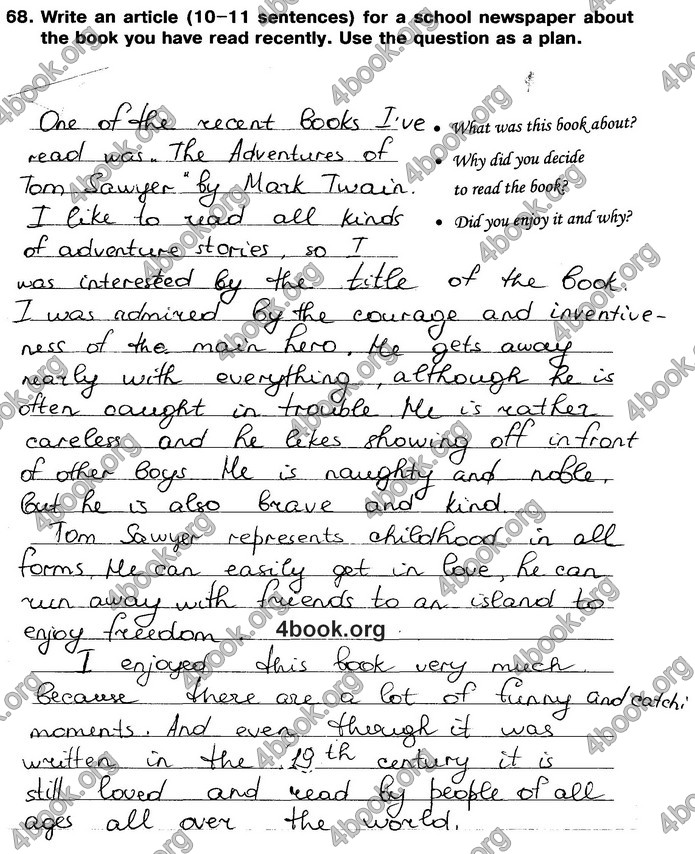 68. Write an article (10–11 sentences) for a school newspaper about
the book you have read recently. Use the question as a plan.
One of the recent books I've
read was "The Adventures of
Tom Sawyer" by Mark Twain.
I like to read all kinds
of adventure stories, so I
• What was this book about?
• Why did you decide
to read the book?
• Did you enjoy it and why?
was interested by the title of the book.
I was admired by the courage and inventive-
ness of the main hero. He gets away
nearly with everything, although he is
often caught in trouble. He is rather
careless and he likes showing off in front
of other boys. He is naughty and noble,
but he is also brave and kind.
Tom Sawyer represents childhood in all
forms. He can easily get in love, he can
run away with friends to an island to
enjoy freedom.
4book.org
I enjoyed this book very much
because there are a lot of funny and catchi
moments. And even through it was
written in the 19th century it is
still loved and read by people of all
ages all over the world.